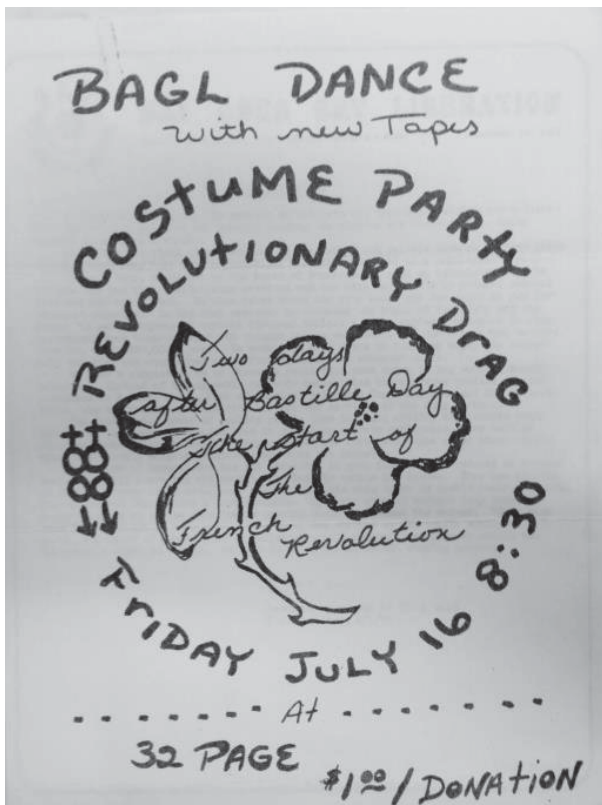 BAGL DANCE
with new Tapes
COSTUME PARTY
REVOLUTIONARY DRAG
Two days
after Bastille Day
The start of
The
French Revolution
FRIDAY JULY 16 8:30
At
32 PAGE
$1.00 / DONATION